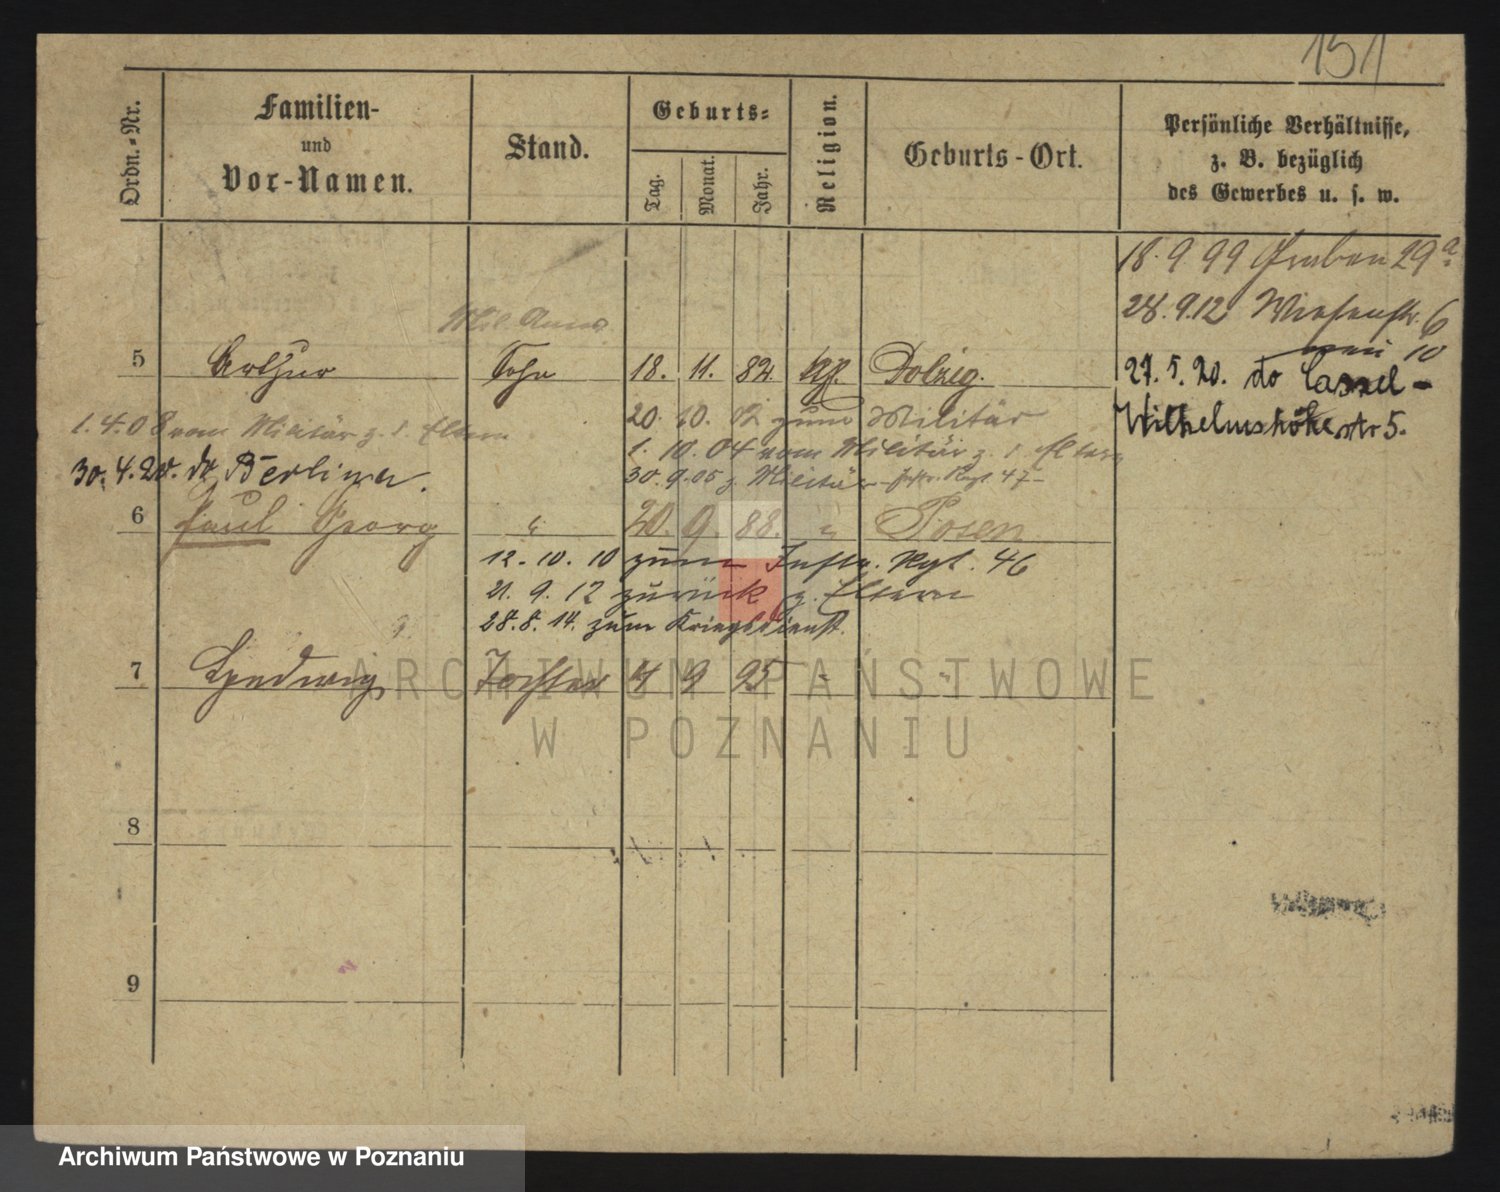 151
Ordn.-Nr.
Familien-
und
Vor-Namen.
Stand.
Geburts-
Tag.
Monat.
Jahr.
Religion.
Geburts-Ort.
Persönliche Verhältnisse,
z. B. bezüglich
des Gewerbes u. s. w.
18. 9 99 Graben 29a
28. 9.12 Wiesenstr. 6
neu 10
Mil.
5 Arthur Sohn 18. 11. 82. Dolzig.
27. 5. 20. do Cassel-
Wilhelmshöhe str 5.
20. 10. 02 zum Militär
1. 4. 08 vom Militär z. d. Eltern
1. 10. 04 vom Militär z. d. Eltern
30. 4. 20. do Berlin
30. 9. 05 z. Militär Inftr. Rgt 47
6 Paul Georg " 20. 9. 88. " Posen
12. 10. 10 zum Inftr. Rgt. 46
21. 9. 12 zurück z. Eltern
28. 8. 14. zum Kriegsdienst.
7 Hedwig Tochter 4 9 95
ARCHIWUM PAŃSTWOWE
W POZNANIU
8
9
Archiwum Państwowe w Poznaniu